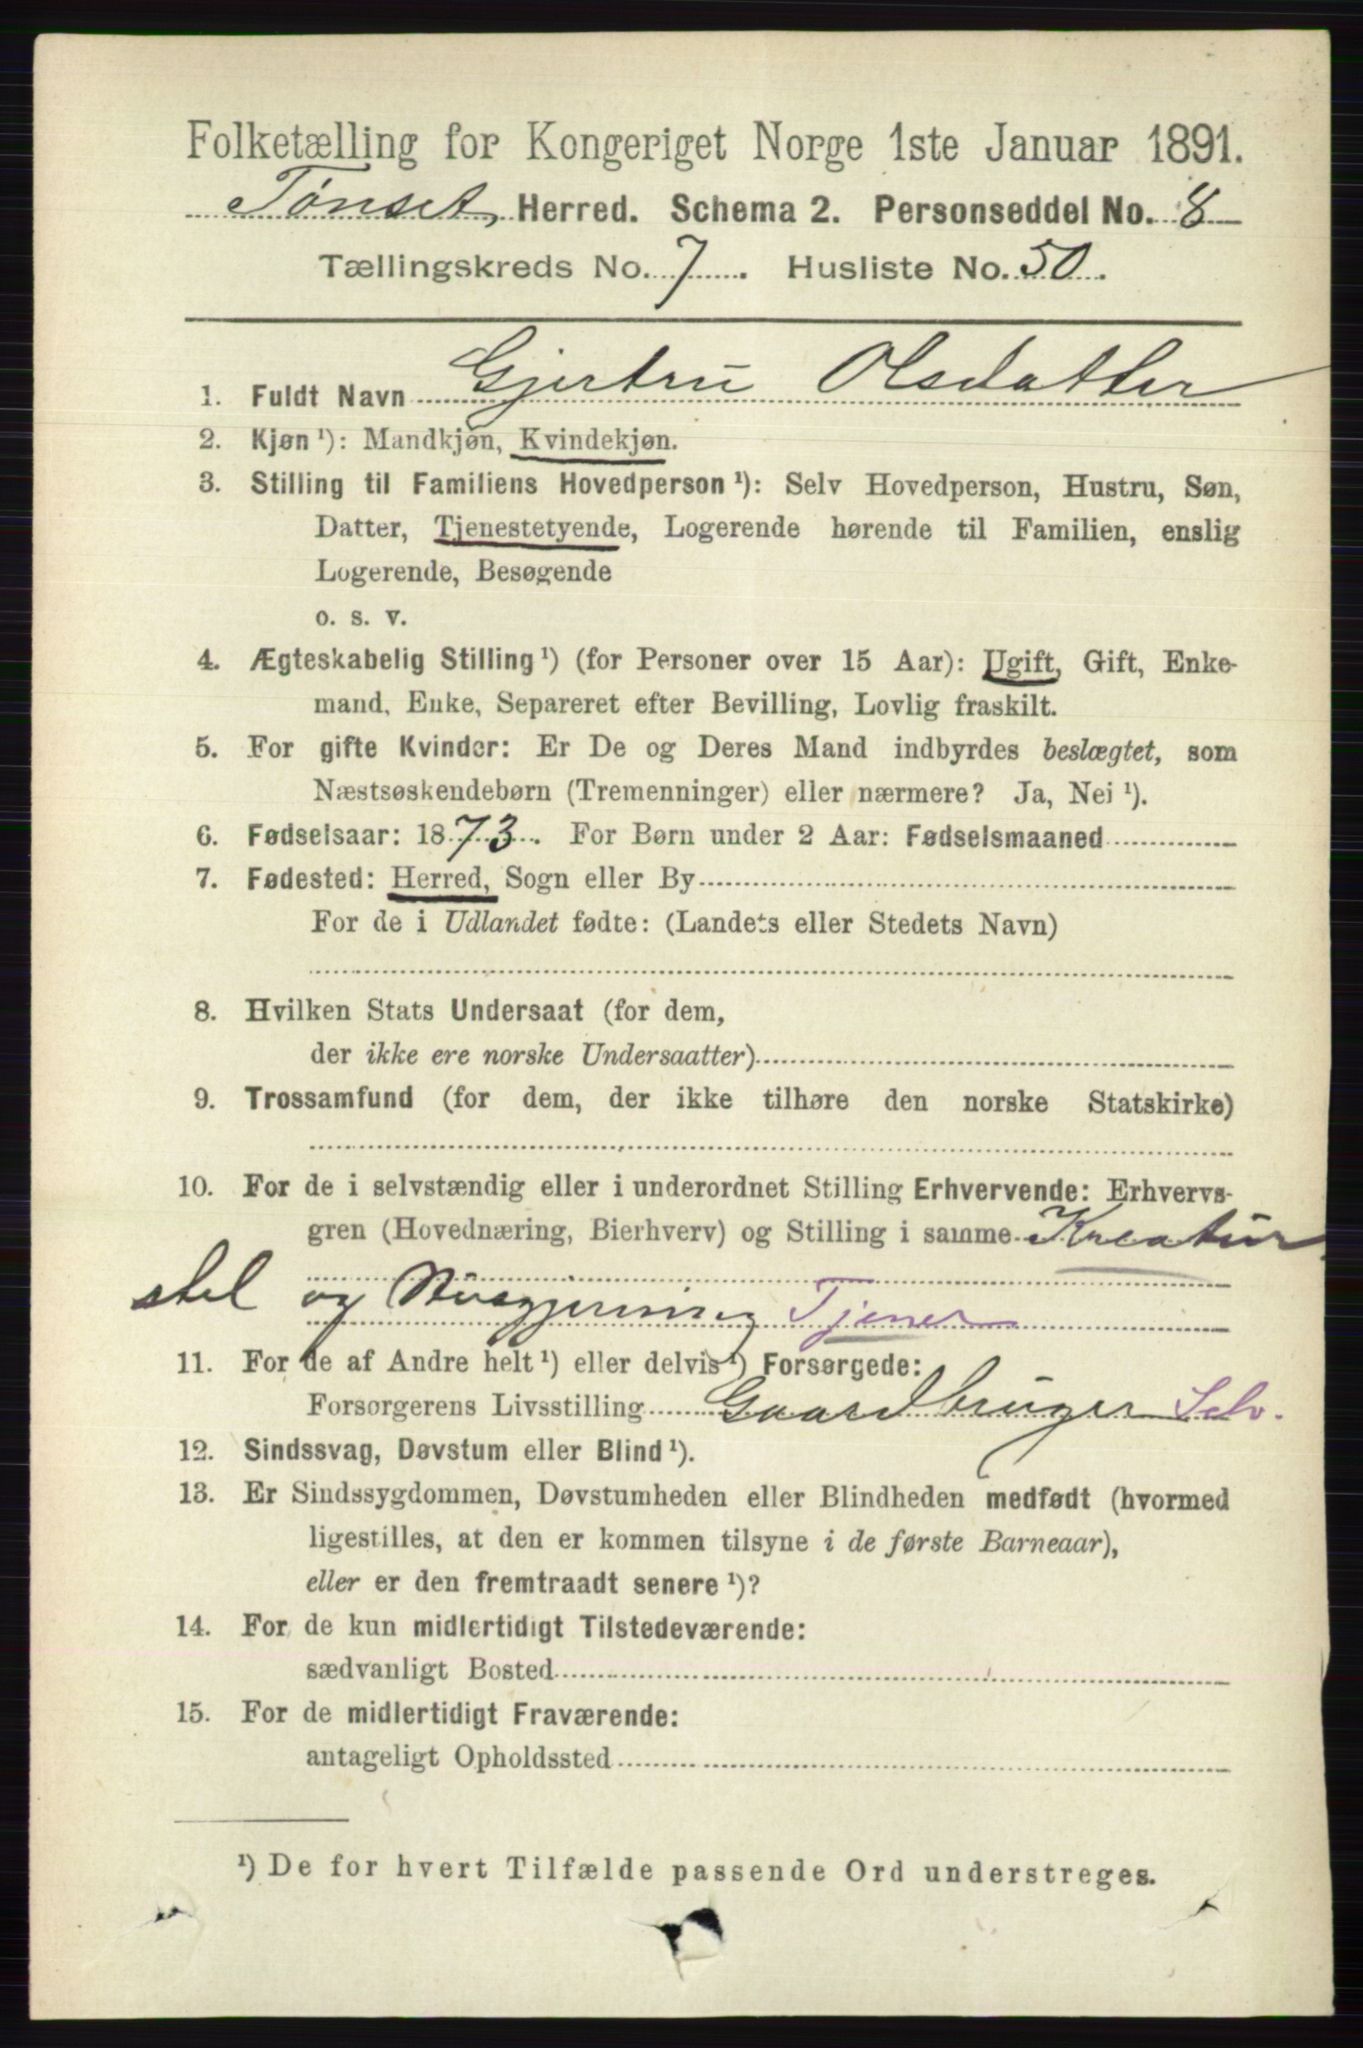 Folketælling for Kongeriget Norge 1ste Januar 1891.
Tønset, Herred. Schema 2. Personseddel No. 8
Tællingskreds No. 7. Husliste No. 50.
1. Fuldt Navn Gjertru Olsdatter
2. Kjøn ¹): Mandkjøn, Kvindekjøn.
3. Stilling til Familiens Hovedperson ¹): Selv Hovedperson, Hustru, Søn,
Datter, Tjenestetyende, Logerende hørende til Familien, enslig
Logerende, Besøgende
o. s. v.
4. Ægteskabelig Stilling ¹) (for Personer over 15 Aar): Ugift, Gift, Enke-
mand, Enke, Separeret efter Bevilling, Lovlig fraskilt.
5. For gifte Kvinder: Er De og Deres Mand indbyrdes beslægtet, som
Næstsøskendebørn (Tremenninger) eller nærmere? Ja, Nei ¹).
6. Fødselsaar: 1873. For Børn under 2 Aar: Fødselsmaaned
7. Fødested: Herred, Sogn eller By
For de i Udlandet fødte: (Landets eller Stedets Navn)
8. Hvilken Stats Undersaat (for dem,
der ikke ere norske Undersaatter)
9. Trossamfund (for dem, der ikke tilhøre den norske Statskirke)
10. For de i selvstændig eller i underordnet Stilling Erhvervende: Erhvervs-
gren (Hovednæring, Bierhverv) og Stilling i samme Kreatur
stel og Husgjerning Tjener
11. For de af Andre helt ¹) eller delvis ¹) Forsørgede:
Forsørgerens Livsstilling Gaardbruger Selv.
12. Sindssvag, Døvstum eller Blind ¹).
13. Er Sindssygdommen, Døvstumheden eller Blindheden medfødt (hvormed
ligestilles, at den er kommen tilsyne i de første Barneaar),
eller er den fremtraadt senere ¹)?
14. For de kun midlertidigt Tilstedeværende:
sædvanligt Bosted
15. For de midlertidigt Fraværende:
antageligt Opholdssted
¹) De for hvert Tilfælde passende Ord understreges.